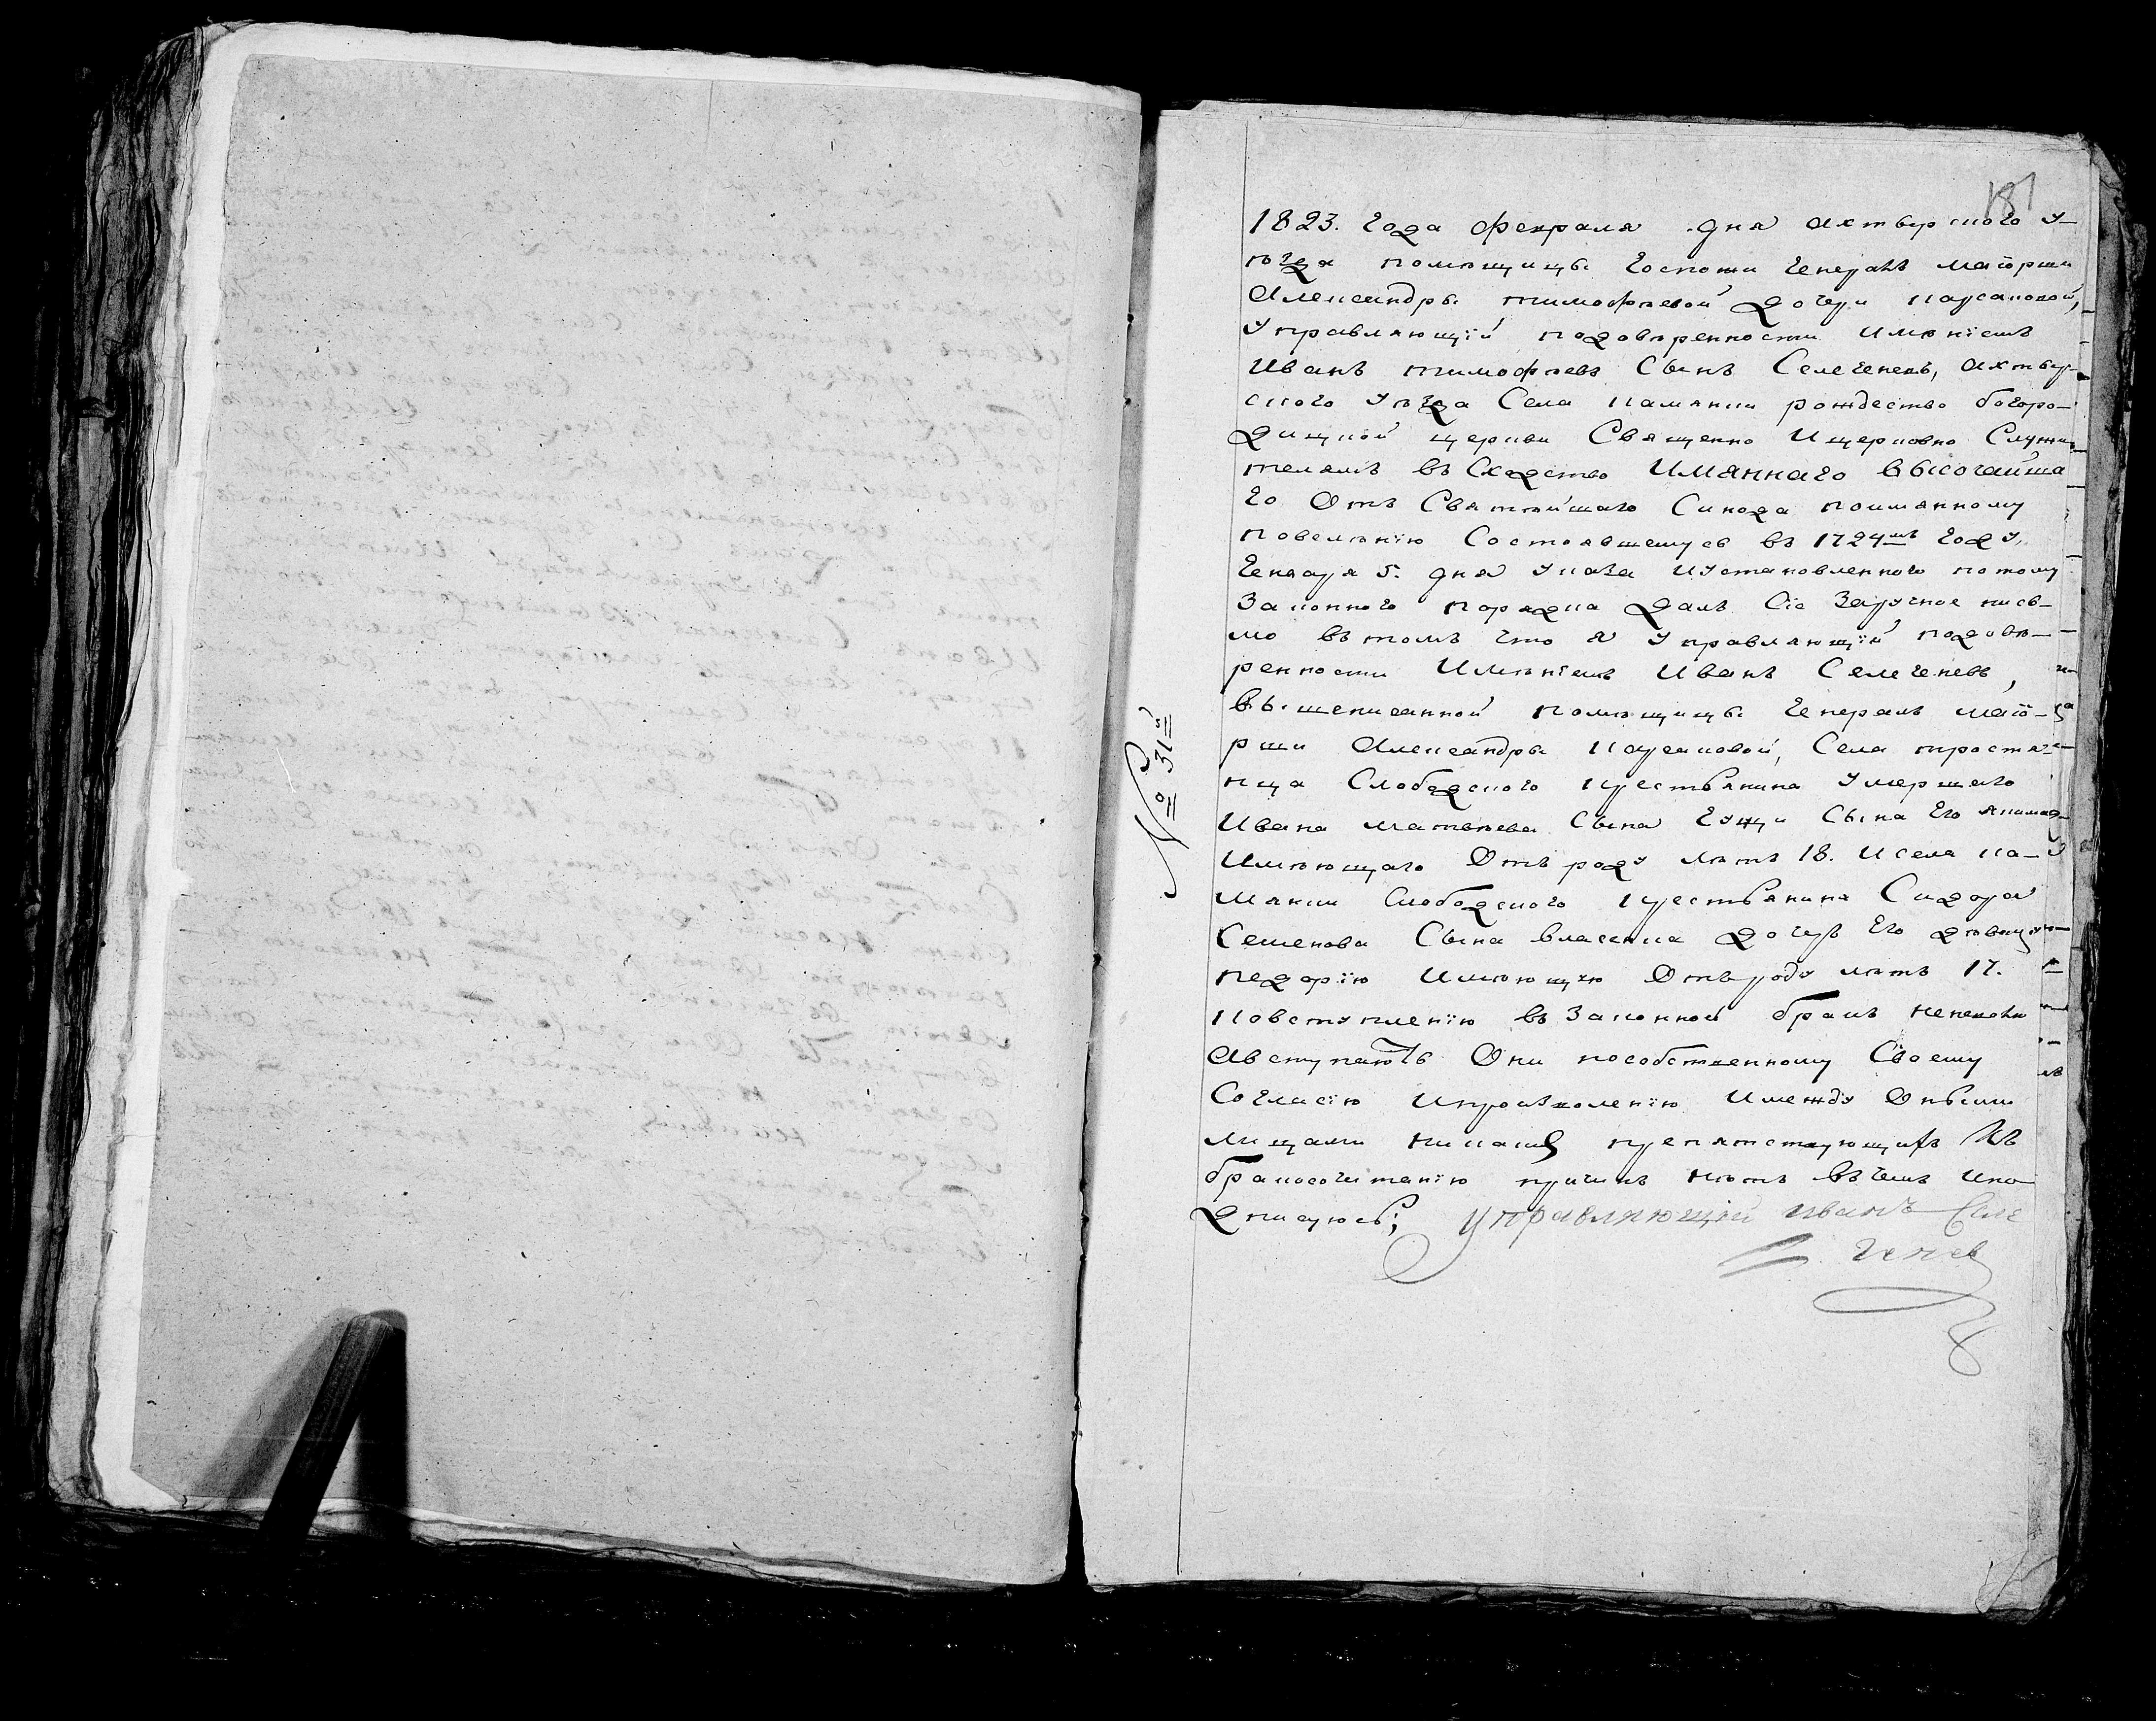 187
1823. года февраля дня ахтырского у-
ѣзда помѣщицы госпожи генералъ маіорши
Александры тимофѣевой дочери Карсаковой,
Управляющій подовѣренности имѣніемъ
Иванъ тимофѣевъ Сынъ Селегеневъ, ахтыр-
ского уѣзда Села Камянки рождество богоро-
дицкой церкви Священно Ицерковно Служи
телямъ въ Сходство Имяннаго высочайша
го Отъ Святѣйшаго Синода поимянному
повелѣнію Состоявшемусь въ 1724мъ году,
Генваря 5. дня указа Иустановленного потому
Законного порядка далъ Сіе Заручное пись-
мо въ томъ что я управляющій подовѣ-
ренности Имѣніемъ Иванъ Селегеневъ,
вышеписанной помѣщицы генералъ маіо-
рши Александры Карсаковой, Села тростя-
нца Слободского крестьянина умершаго
Ивана матвѣева Сына Гущи Сына Его
Имѣющаго Отъ роду лѣтъ 18. Исела Ка-
мянки Слободского крестьянина Сидора
Семенова Сына власенка дочерь Его дѣвицу
Федорію Имѣющую Отъ роду лѣтъ 17.
Ковступленію въ Законной бракъ
Авступаютъ Они пособственному Своему
Согласію Ипроизволенію Имежду Оными
лицами никакихъ препятствующихъ Къ
бракосочитанію причинъ нѣтъ въ чемъ ипо
дписуюсь; управляющій иванъ Селе
генев
№ 31й